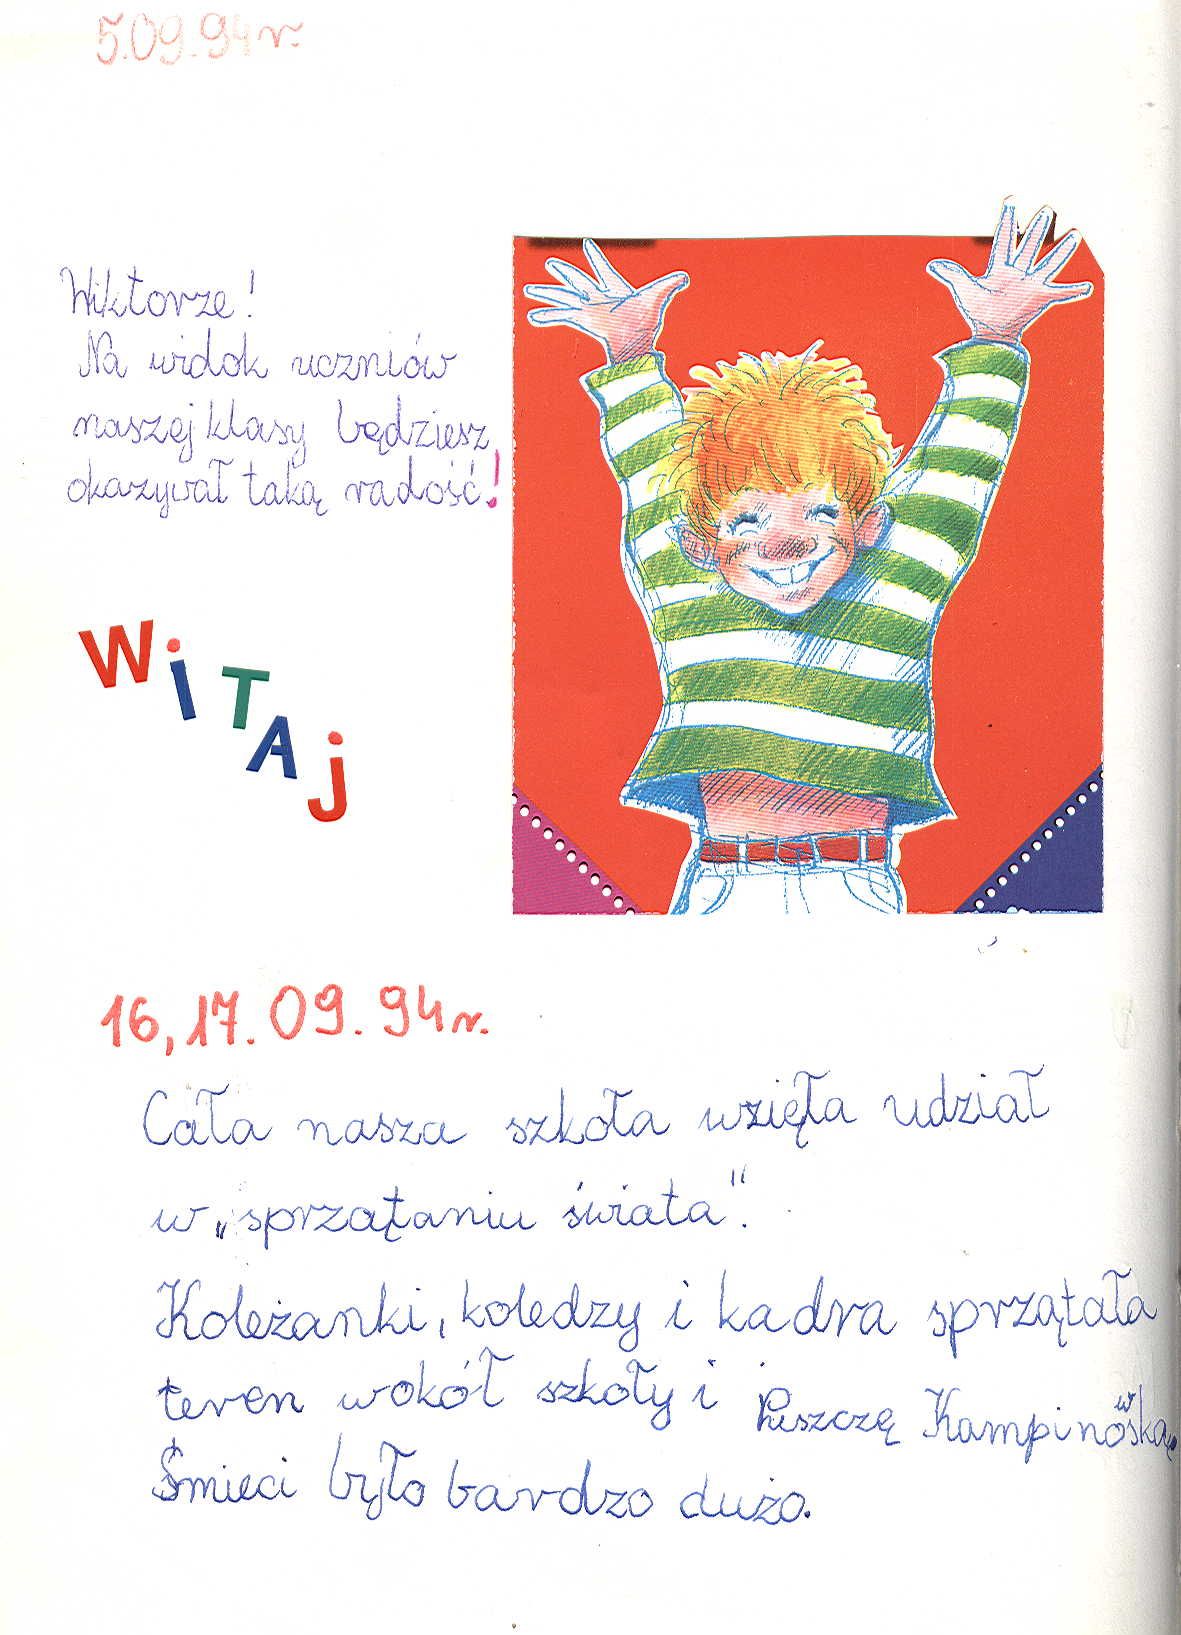 5.09.94 r.
Wiktorze!
Na widok uczniów
naszej klasy będziesz
okazywał taką radość!
WiTAj
16, 17. 09. 94 r.
Cała nasza szkoła wzięła udział
w „sprzątaniu świata".
Koleżanki, koledzy i kadra sprzątała
teren wokół szkoły i Puszczę Kampinowską.
Śmieci było bardzo dużo.